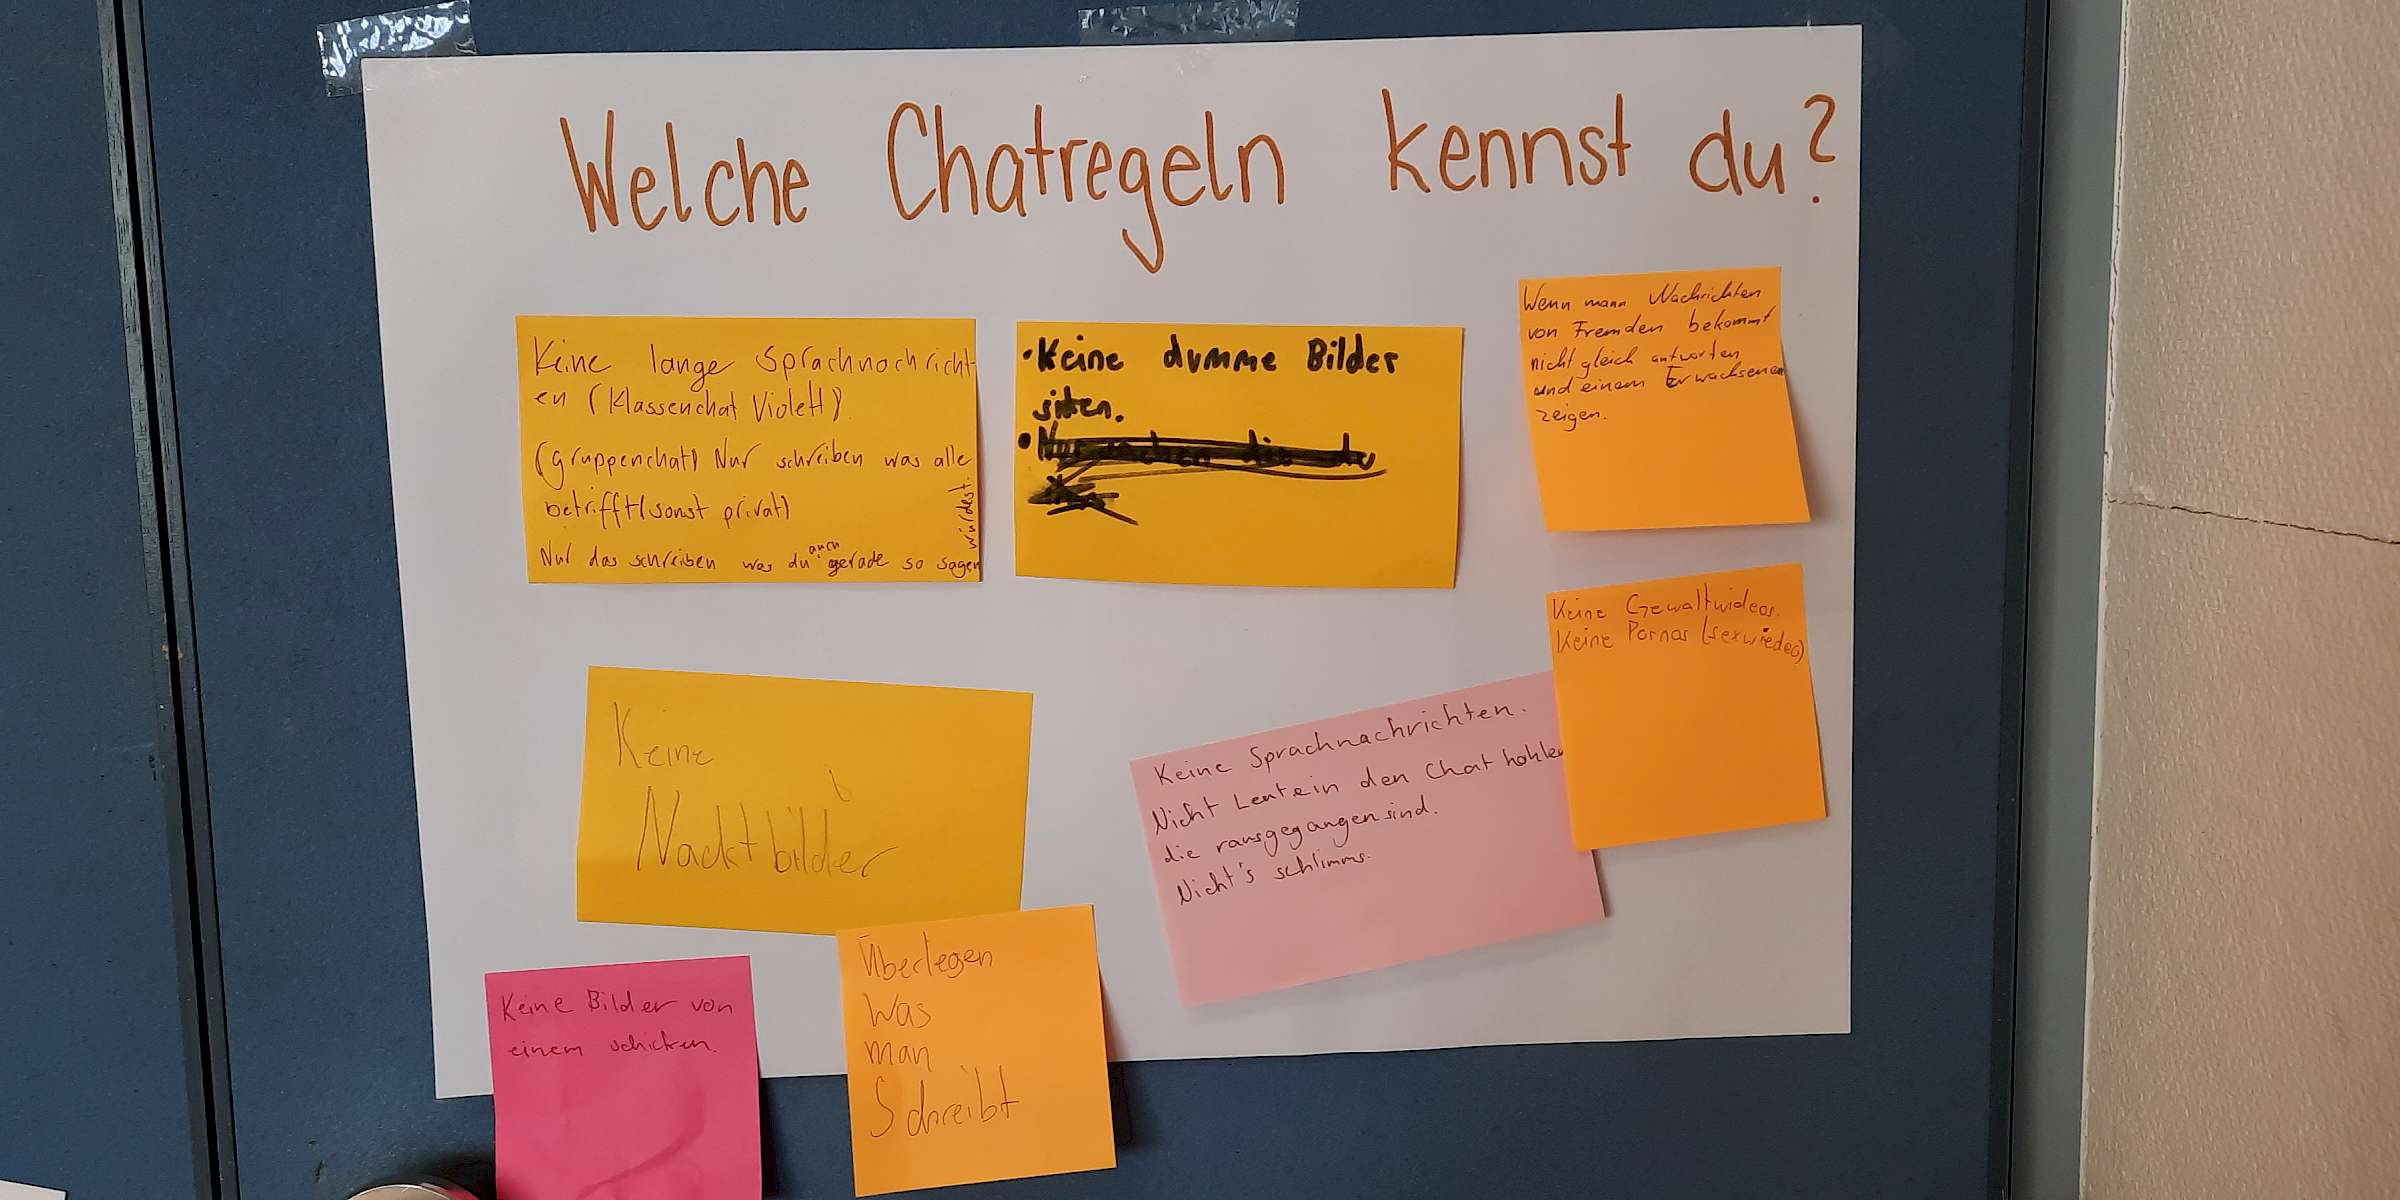 Welche Chatregeln kennst du?
Keine lange Sprachnachricht-
en (Klassenchat Violett)
(gruppenchat) Nur schreiben was alle
betrifft (sonst privat)
Nur das schreiben was du auch gerade so sagen
würdest.
• Keine dumme Bilder
• Nur machen die du
Wenn mann Nachrichten
von Fremden bekommt
nicht gleich antworten
und einem Erwachsenen
zeigen.
Keine Gewaltwideos.
Keine Pornos (sexwiedeo)
Keine
Nacktbilder
Keine Sprachnachrichten.
Nicht Leute in den Chat hohlen
die rausgegangen sind.
Nicht's schlimms.
Überlegen
Was
man
Schreibt
Keine Bilder von
einem schicken.